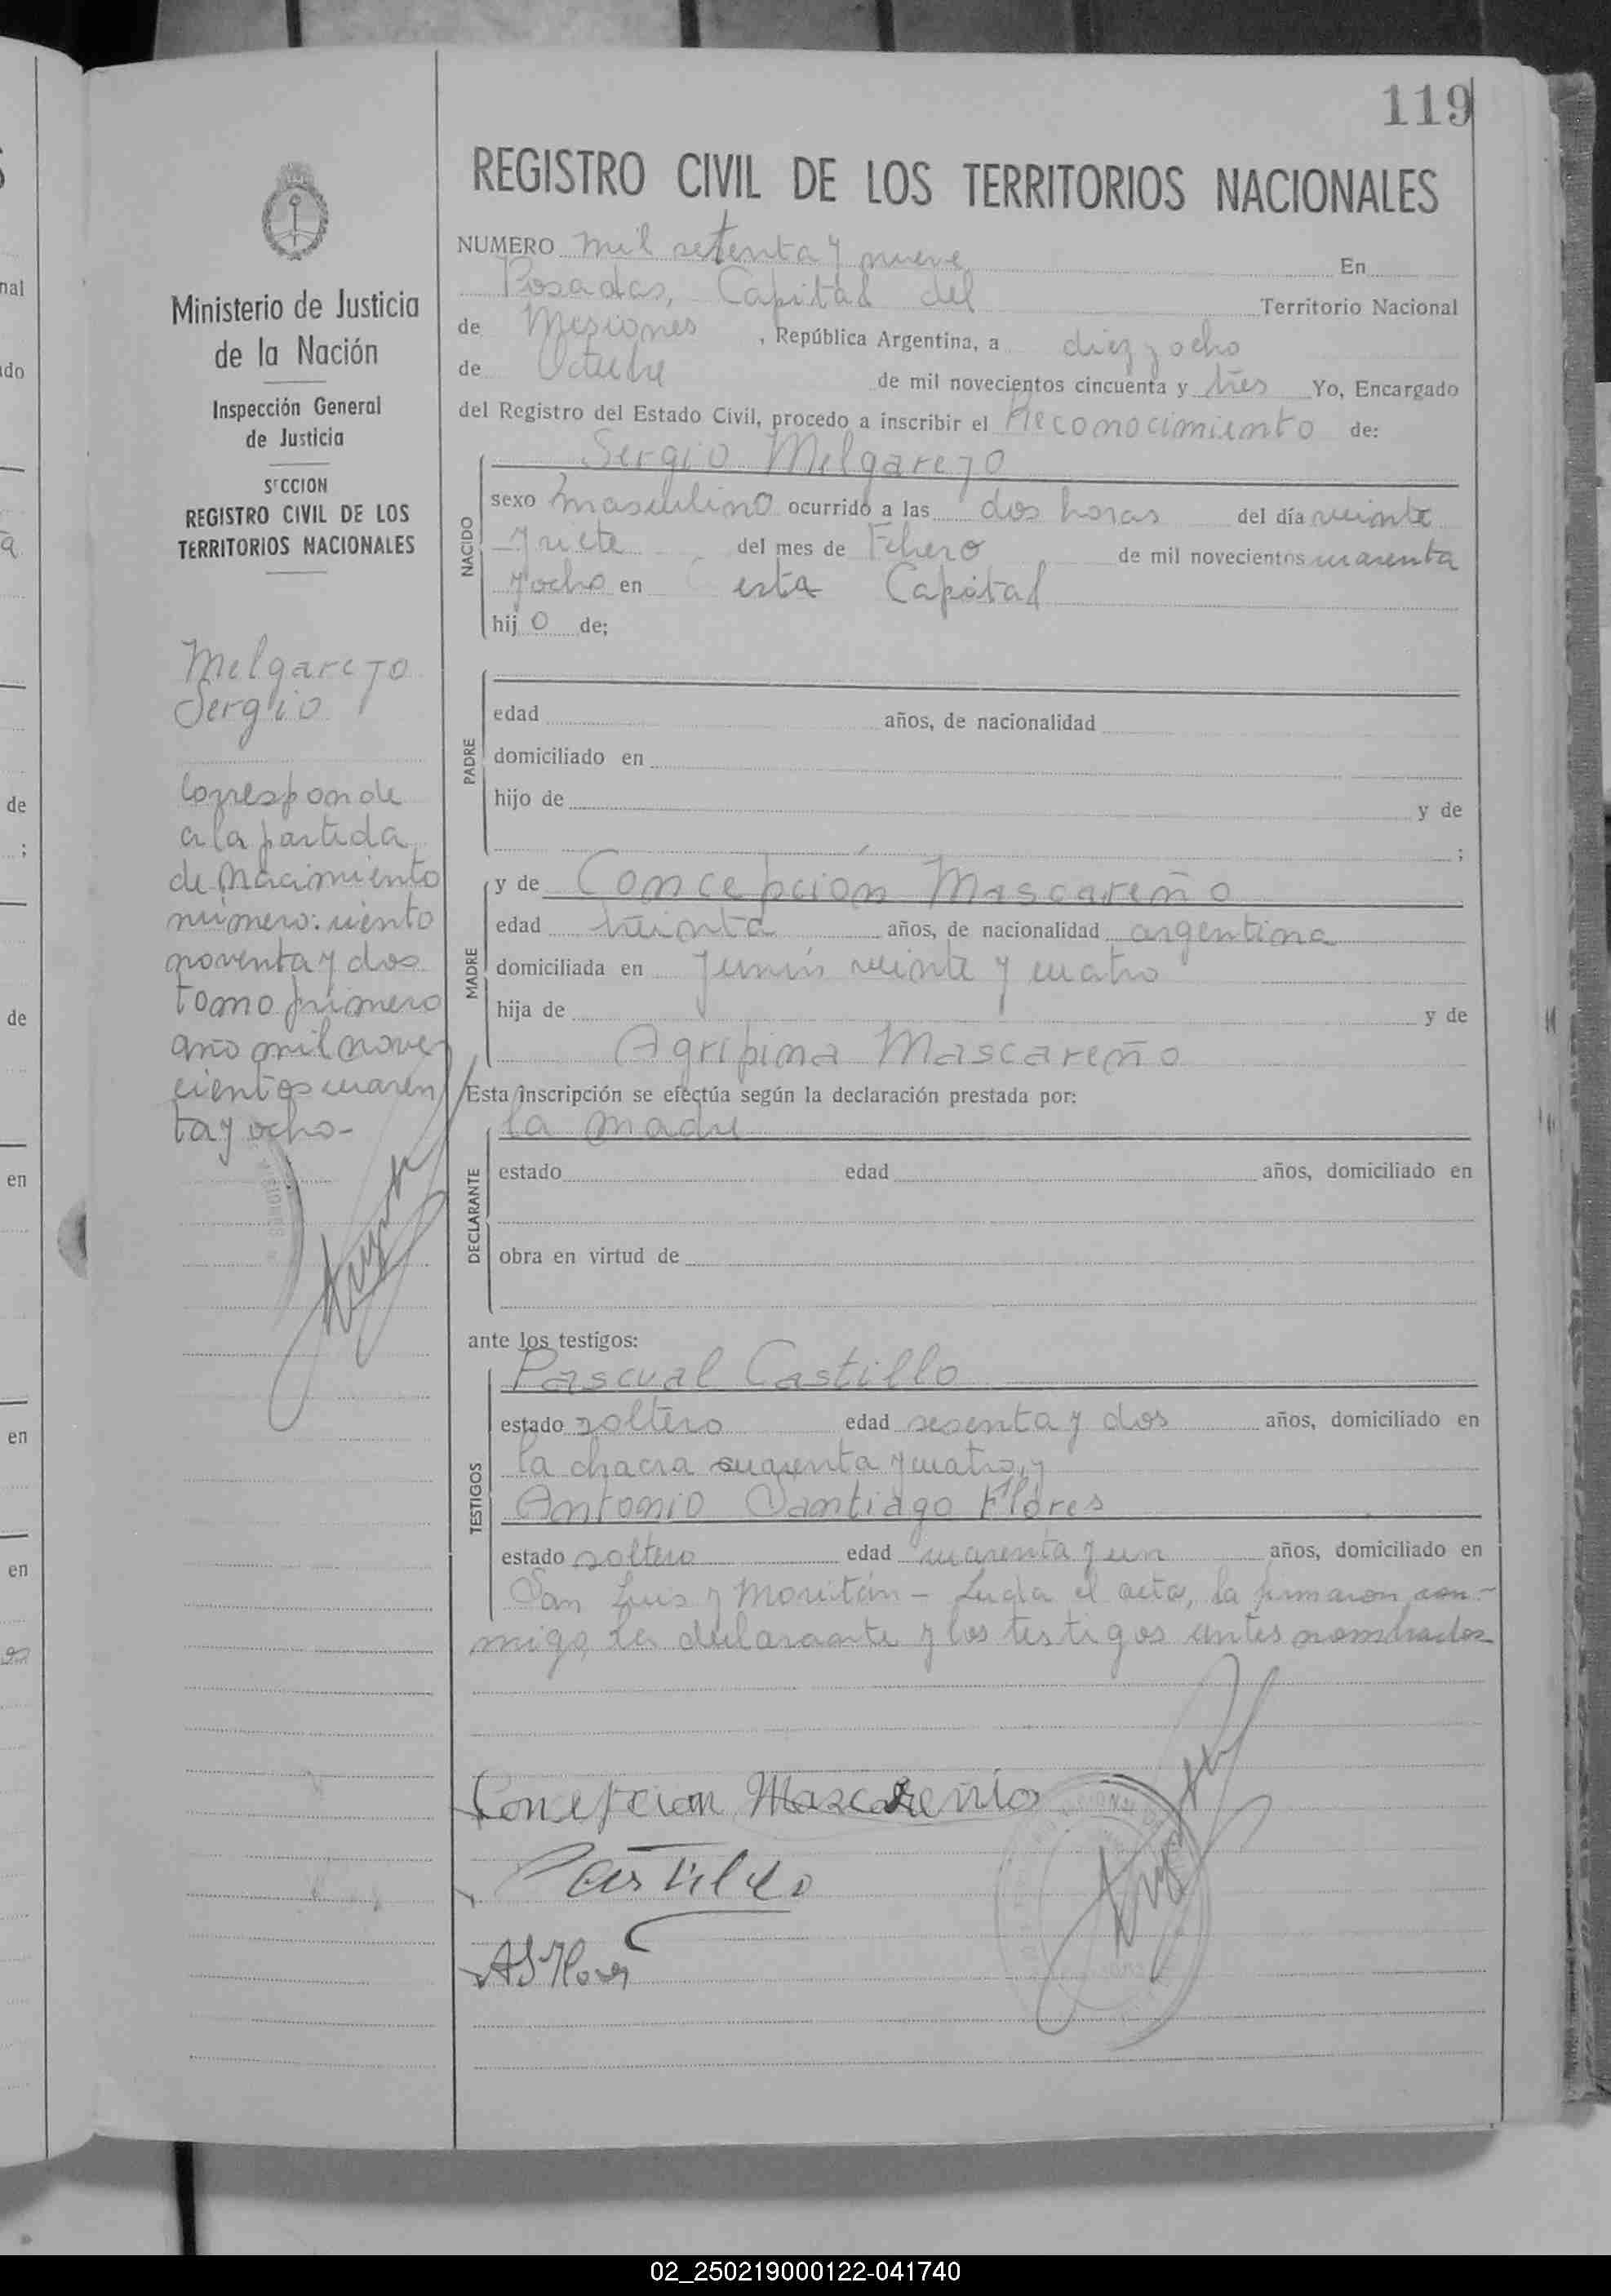 119
REGISTRO CIVIL DE LOS TERRITORIOS NACIONALES
NUMERO mil setenta y nueve En
Posadas, Capital del Territorio Nacional
de Misiones, República Argentina, a diez y ocho
de Octubre de mil novecientos cincuenta y tres Yo, Encargado
del Registro del Estado Civil, procedo a inscribir el Reconocimiento de:
Sergio Melgarejo
NACIDO
sexo masculino ocurrido a las dos horas del día veinte
y siete del mes de Febrero de mil novecientos cuarenta
y ocho en esta Capital
hijo de;
PADRE
edad años, de nacionalidad
domiciliado en
hijo de y de
;
MADRE
y de Concepción Mascareño
edad treinta años, de nacionalidad argentina
domiciliada en Junín veinte y cuatro
hija de y de
Agripina Mascareño
Esta inscripción se efectúa según la declaración prestada por:
DECLARANTE
la madre
estado edad años, domiciliado en
obra en virtud de
ante los testigos:
TESTIGOS
Pascual Castillo
estado soltero edad sesenta y dos años, domiciliado en
la chacra cuarenta y cuatro, y
Antonio Santiago Flores
estado soltero edad cuarenta y un años, domiciliado en
San Luis y - Leida el acta, la firmaron con-
migo, la declarante y los testigos antes nombrados
Concepcion Mascareñio
Castillo
AS Flores
Ministerio de Justicia
de la Nación
Inspección General
de Justicia
SECCION
REGISTRO CIVIL DE LOS
TERRITORIOS NACIONALES
Melgarejo
Sergio
Corresponde
a la partida
de Nacimiento
número: ciento
noventa y dos
tomo primero
año mil nove-
cientos cuaren
ta y ocho-
nal
do
de
;
de
en
en
en
02_250219000122-041740